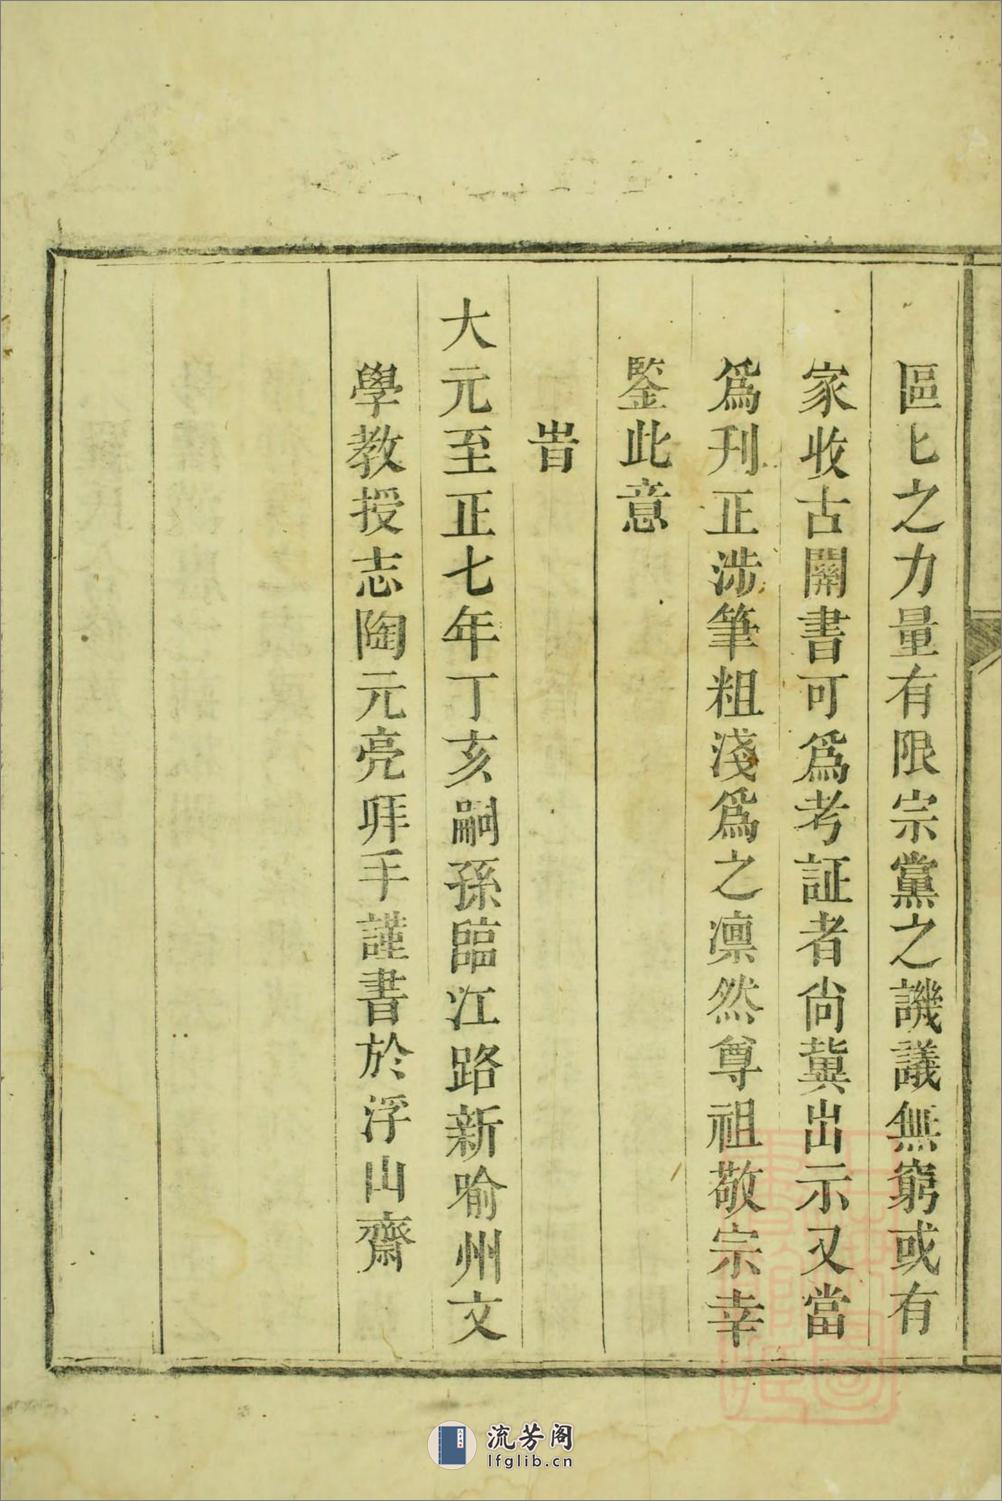 區匕之力量有限宗黨之譏議無窮或有
家收古關書可爲考証者尙冀出示又當
爲刊正涉筆粗淺爲之凛然尊祖敬宗幸
鍳此意
旹
大元至正七年丁亥嗣孫臨江路新喻州文
學教授志陶元亮拜手謹書於浮山齋
流芳阁
lfglib.cn